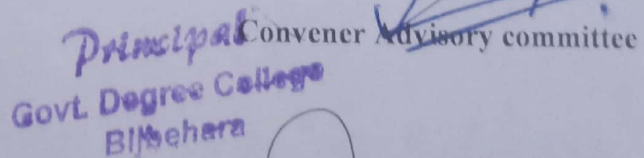 Principal Convener Advisory committee
Govt. Degree College
Bijbehara